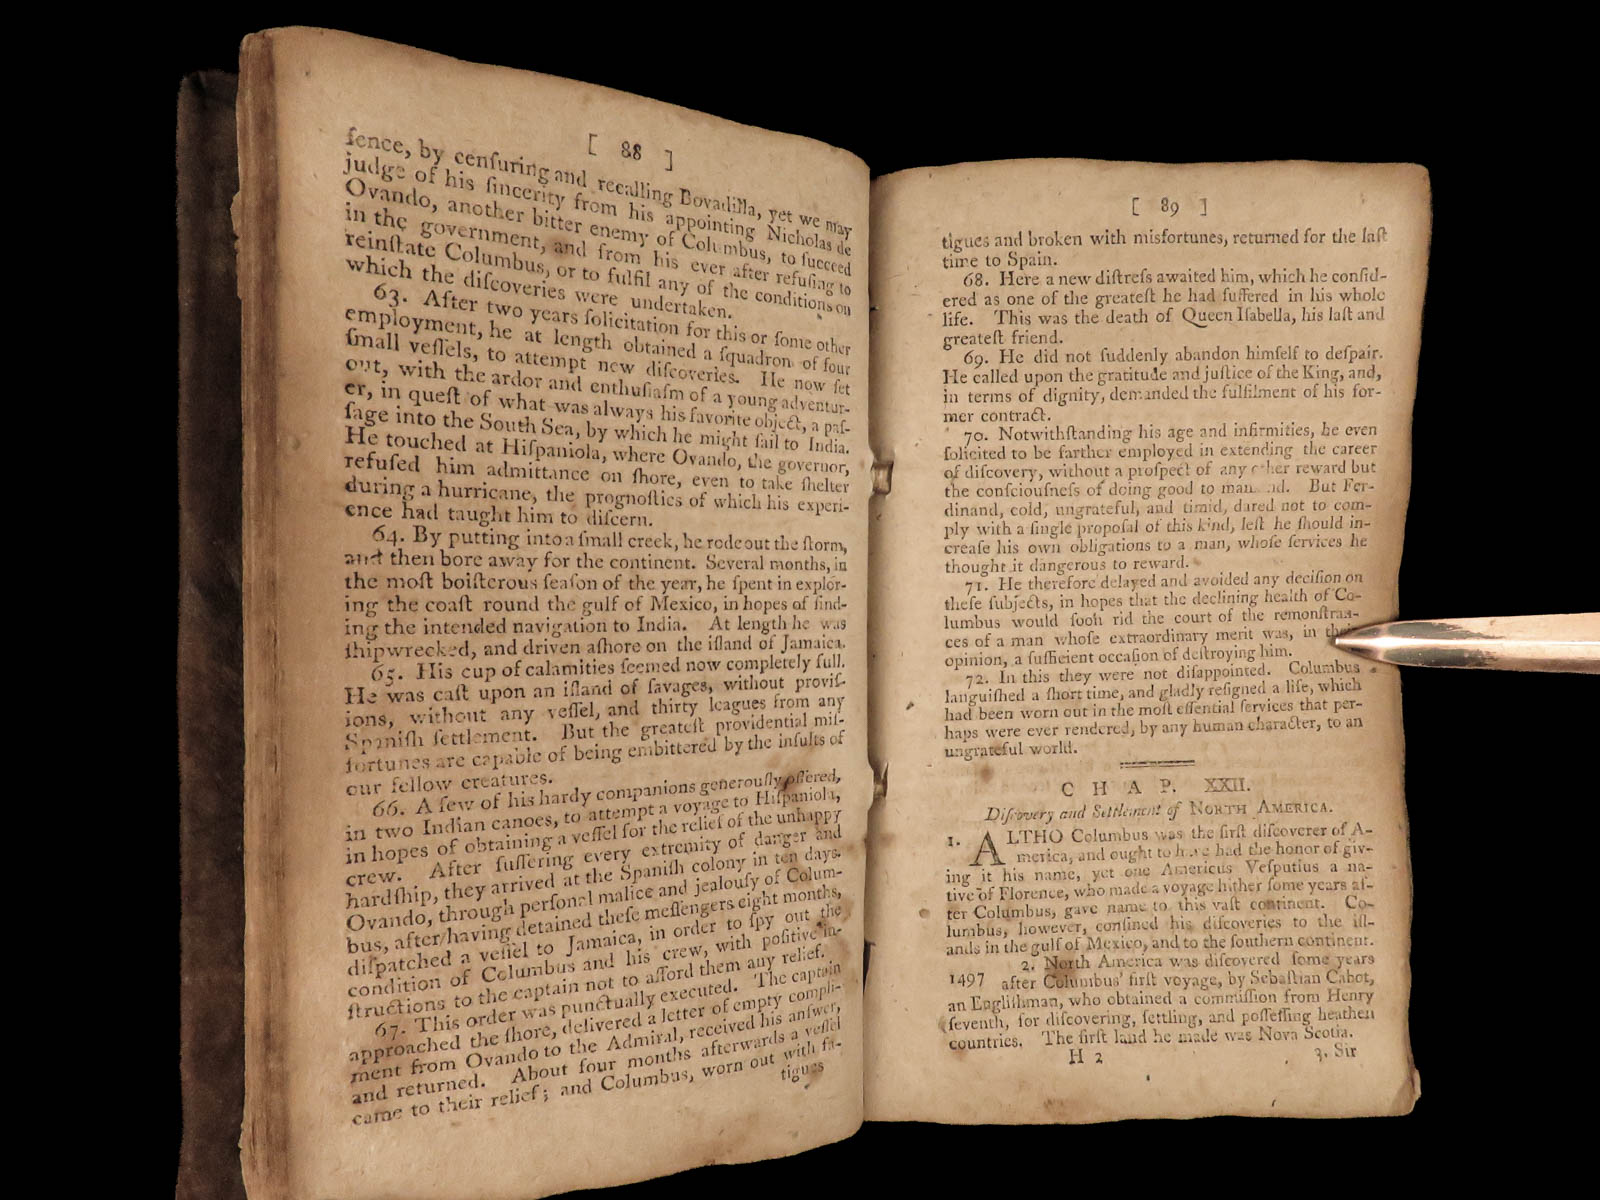 [ 88 ]
ſence, by cenſuring and recalling Bovadilla, yet we may
judge of his ſincerity from his appointing Nicholas de
Ovando, another bitter enemy of Columbus, to ſucceed
in the government, and from his ever after refuſing to
reinſtate Columbus, or to fulfil any of the conditions on
which the diſcoveries were undertaken.
63. After two years ſolicitation for this or ſome other
employment, he at length obtained a ſquadron of four
ſmall veſſels, to attempt new diſcoveries. He now ſet
out, with the ardor and enthuſiaſm of a young adventur-
er, in queſt of what was always his favorite object, a paſ-
ſage into the South Sea, by which he might ſail to India.
He touched at Hiſpaniola, where Ovando, the governor,
refuſed him admittance on ſhore, even to take ſhelter
during a hurricane, the prognoſtics of which his experi-
ence had taught him to diſcern.
64. By putting into a ſmall creek, he rode out the ſtorm,
and then bore away for the continent. Several months, in
the moſt boiſterous ſeaſon of the year, he ſpent in explor-
ing the coaſt round the gulf of Mexico, in hopes of find-
ing the intended navigation to India. At length he was
ſhipwrecked, and driven aſhore on the iſland of Jamaica.
65. His cup of calamities ſeemed now completely full.
He was caſt upon an iſland of ſavages, without proviſ-
ions, without any veſſel, and thirty leagues from any
Spaniſh ſettlement. But the greateſt providential miſ-
fortunes are capable of being embittered by the inſults of
our fellow creatures.
66. A few of his hardy companions generouſly offered,
in two Indian canoes, to attempt a voyage to Hiſpaniola,
in hopes of obtaining a veſſel for the relief of the unhappy
crew. After ſuffering every extremity of danger and
hardſhip, they arrived at the Spaniſh colony in ten days.
Ovando, through perſonal malice and jealouſy of Colum-
bus, after having detained theſe meſſengers eight months,
diſpatched a veſſel to Jamaica, in order to ſpy out the
condition of Columbus and his crew, with poſitive in-
ſtructions to the captain not to afford them any relief.
67. This order was punctually executed. The captain
approached the ſhore, delivered a letter of empty compli-
ment from Ovando to the Admiral, received his anſwer,
and returned. About four months afterwards a veſſel
came to their relief; and Columbus, worn out with fa-
tigues
[ 89 ]
tigues and broken with misfortunes, returned for the laſt
time to Spain.
68. Here a new diſtreſs awaited him, which he conſid-
ered as one of the greateſt he had ſuffered in his whole
life. This was the death of Queen Iſabella, his laſt and
greateſt friend.
69. He did not ſuddenly abandon himſelf to deſpair.
He called upon the gratitude and juſtice of the King, and,
in terms of dignity, demanded the fulfilment of his for-
mer contract.
70. Notwithſtanding his age and infirmities, he even
ſolicited to be farther employed in extending the career
of diſcovery, without a proſpect of any other reward but
the conſciouſneſs of doing good to mankind. But Fer-
dinand, cold, ungrateful, and timid, dared not to com-
ply with a ſingle propoſal of this kind, leſt he ſhould in-
creaſe his own obligations to a man, whoſe ſervices he
thought it dangerous to reward.
71. He therefore delayed and avoided any deciſion on
theſe ſubjects, in hopes that the declining health of Co-
lumbus would ſoon rid the court of the remonſtran-
ces of a man whoſe extraordinary merit was, in their
opinion, a ſufficient occaſion of deſtroying him.
72. In this they were not diſappointed. Columbus
languiſhed a ſhort time, and gladly reſigned a life, which
had been worn out in the moſt eſſential ſervices that per-
haps were ever rendered, by any human character, to an
ungrateful world.
CHAP. XXII.
Diſcovery and Settlement of NORTH AMERICA.
1. ALTHO Columbus was the firſt diſcoverer of A-
merica, and ought to have had the honor of giv-
ing it his name, yet one Americus Veſputius a na-
tive of Florence, who made a voyage hither ſome years af-
ter Columbus, gave name to this vaſt continent. Co-
lumbus, however, confined his diſcoveries to the iſl-
ands in the gulf of Mexico, and to the ſouthern continent.
2. North America was diſcovered ſome years
1497 after Columbus' firſt voyage, by Sebaſtian Cabot,
an Engliſhman, who obtained a commiſſion from Henry
ſeventh, for diſcovering, ſettling, and poſſeſſing heathen
countries. The firſt land he made was Nova Scotia.
H 2 3. Sir